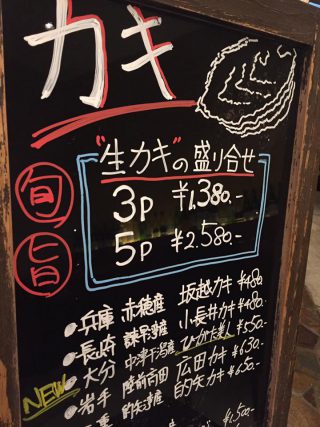 カキ
旬
旨
"生カキ"の盛り合せ
3P ¥1,380.-
5P ¥2,580.-
兵庫 赤穂産 坂越カキ ¥480
長崎 諫早産 小長井カキ ¥480.-
大分 中津干潟産 ひがた美人 ¥550.-
NEW 岩手 陸前高田 広田カキ ¥630.-
的矢産 的矢カキ ¥650.-
¥1,500.-